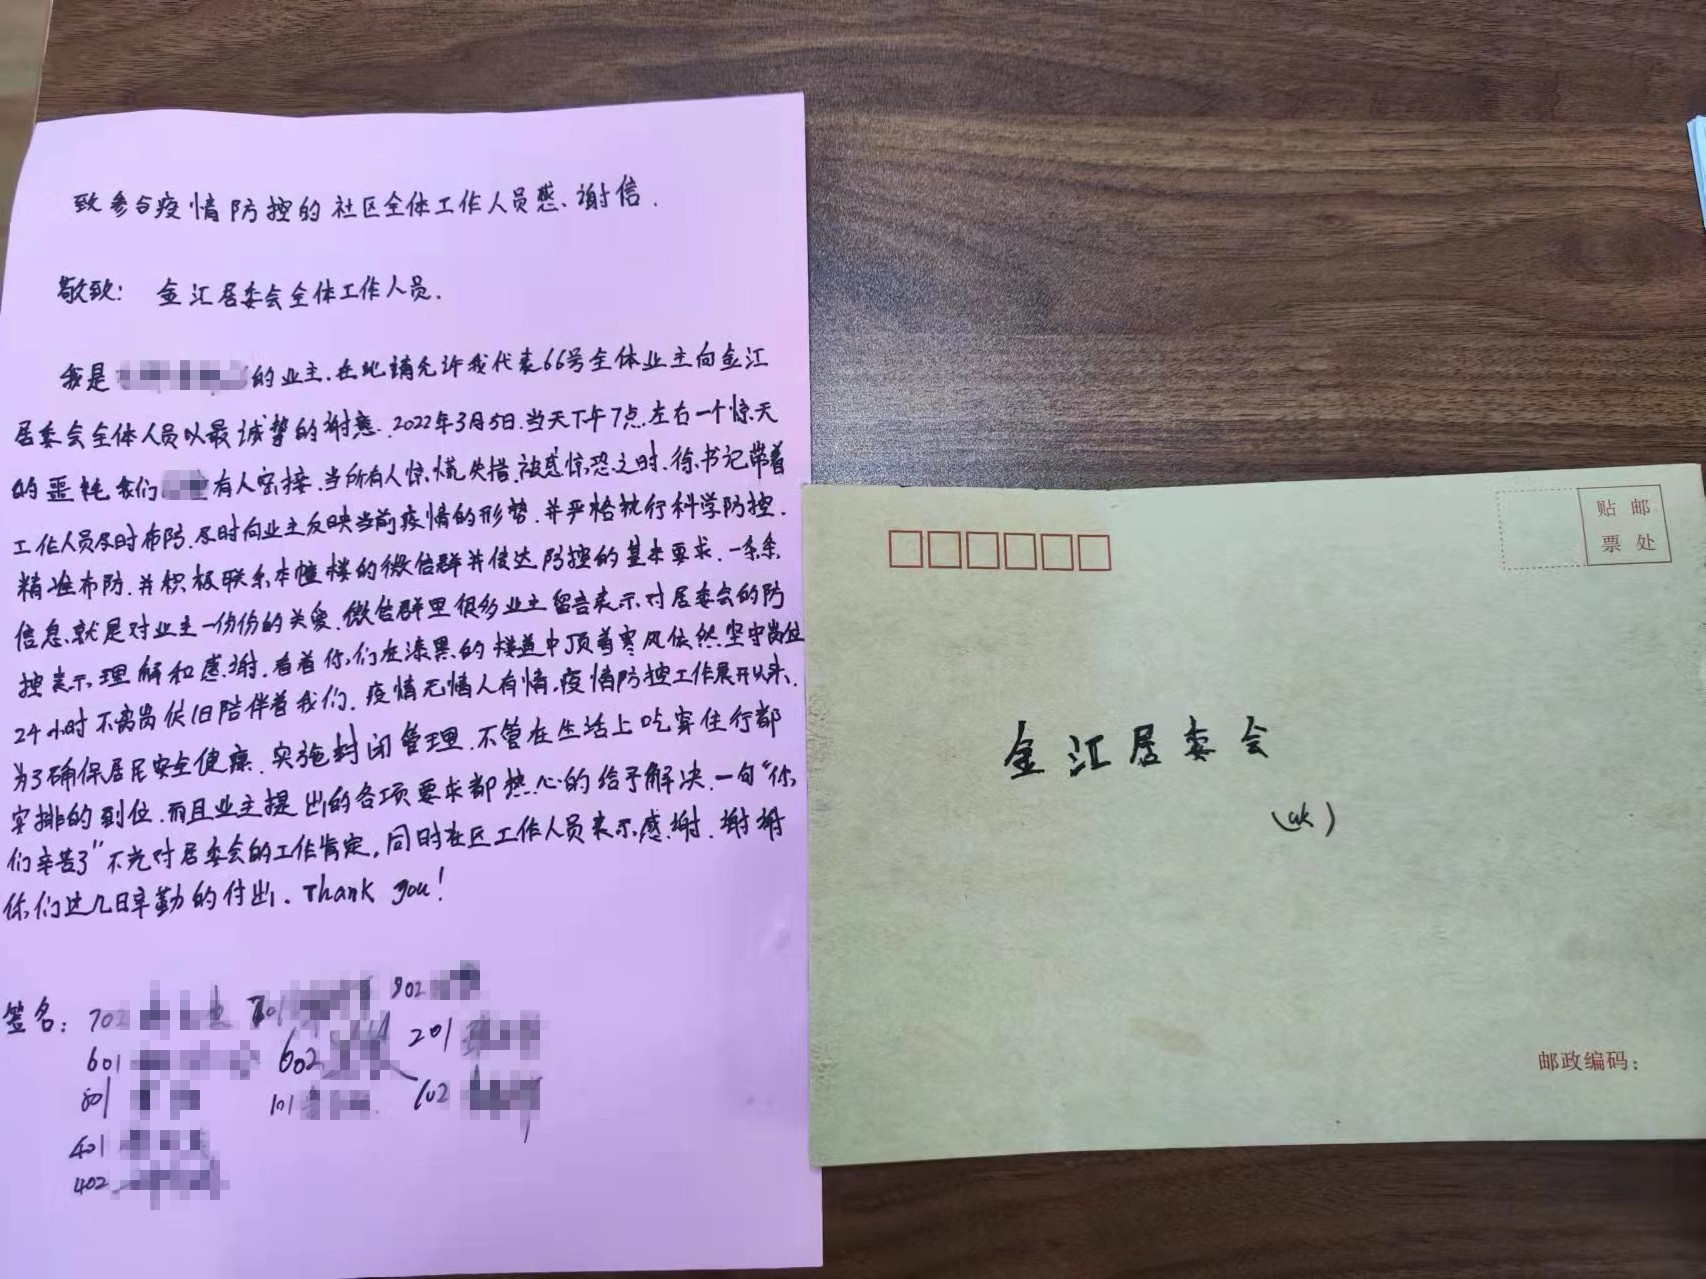 致参与疫情防控的社区全体工作人员感谢信.
敬致: 金江居委会全体工作人员.
我是 的业主.在地请允许我代表66号全体业主向金江
居委会全体人员以最诚挚的谢意.2022年3月5日.当天下午7点.左右一个惊天
的噩耗我们 有人密接.当所有人惊慌失措.被感惊恐之时.徐书记带着
工作人员及时布防.及时向业主反映当前疫情的形势.并严格执行科学防控.
精准布防.并积极联系本幢楼的微信群并传达防控的基本要求.一条条
信息.就是对业主一份份的关爱.微信群里很多业主留言表示对居委会的防
控表示理解和感谢.看着你们在漆黑的楼道中顶着寒风依然坚守岗位
24小时不离岗依旧陪伴着我们.疫情无情人有情.疫情防控工作展开以来.
为了确保居民安全健康.实施封闭管理.不管在生活上吃穿住行都
安排的到位.而且业主提出的各项要求都热心的给予解决.一句“你
们辛苦了”不光对居委会的工作肯定,同时社区工作人员表示感谢.谢谢
你们这几日辛勤的付出. Thank you!
签名: 702 902
601 602 201
501 101 102
401
402
贴 邮
票 处
金江居委会
(收)
邮政编码: